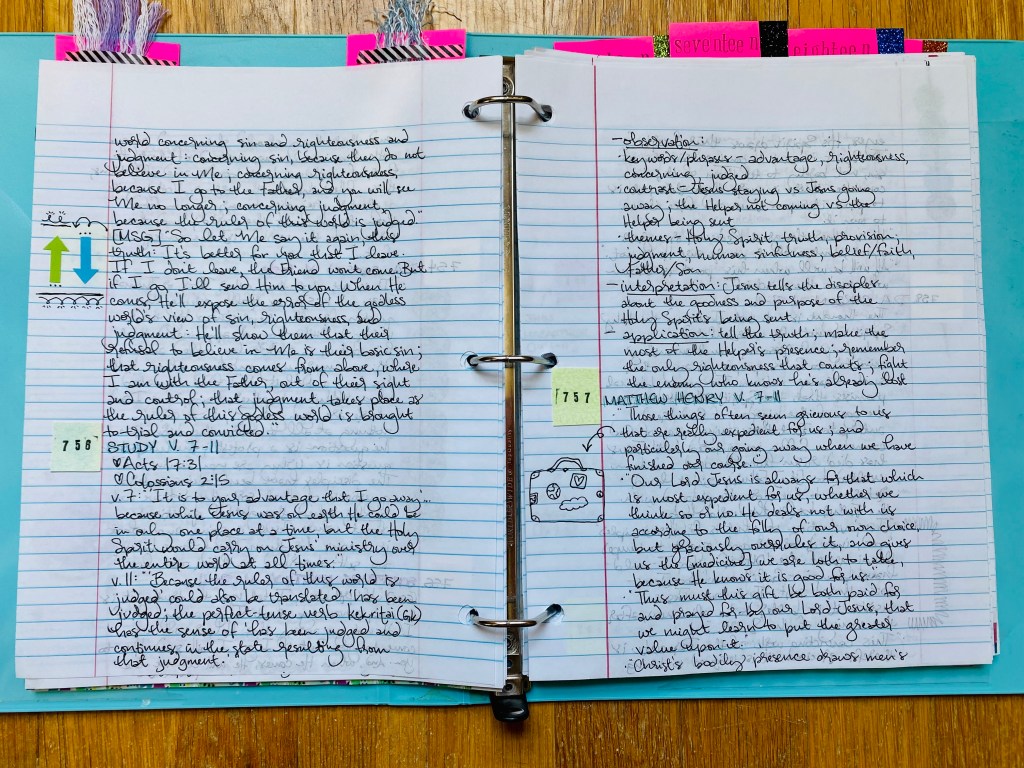 seventeen
eighteen
world concerning sin and righteousness and
judgment: concerning sin, because they do not
believe in Me; concerning righteousness,
because I go to the Father and you will see
Me no longer; concerning judgment,
because the ruler of this world is judged"
[MSG] "So let Me say it again, this
truth: It's better for you that I leave.
If I don't leave, the Friend won't come. But
if I go, I'll send Him to you. When He
comes, He'll expose the error of the godless
world's view of sin, righteousness, and
judgment: He'll show them that their
refusal to believe in Me is their basic sin;
that righteousness comes from above, where
I am with the Father, out of their sight
and control; that judgment takes place as
the ruler of this godless world is brought
to trial and convicted."
756
STUDY V. 7-11
Acts 17:31
Colossians 2:15
v. 7: "It is to your advantage that I go away'...
because while Jesus was on earth He could be
in only one place at a time, but the Holy
Spirit would carry on Jesus' ministry over
the entire world at all times."
v. 11: "'Because the ruler of this world is
judged' could also be translated 'has been
judged'; the perfect-tense verb kekritai (Gk)
has the sense of 'has been judged and
continues in the state resulting from
that judgment.'"
- observation:
· keywords/phrases - advantage, righteousness,
concerning, judged
· contrast - Jesus staying vs Jesus going
away; the Helper not coming vs the
Helper being sent
· themes - Holy Spirit, truth, provision,
judgment, human sinfulness, belief/faith,
Father/Son
- interpretation: Jesus tells the disciples
about the goodness and purpose of the
Holy Spirit's being sent
- application: tell the truth; make the
most of the Helper's presence; remember
the only righteousness that counts; fight
the enemy who knows he's already lost
757
MATTHEW HENRY V. 7-11
· "Those things often seem grievous to us
that are really expedient for us; and
particularly our going away when we have
finished our course."
· "Our Lord Jesus is always for that which
is most expedient for us, whether we
think so or no. He deals not with us
according to the folly of our own choice,
but graciously overrules it, and gives
us the [medicine] we are loth to take,
because He knows it is good for us."
· "Thus must this gift be both paid for
and prayed for by our Lord Jesus, that
we might learn to put the greater
value upon it."
· "Christ's bodily presence draws men's